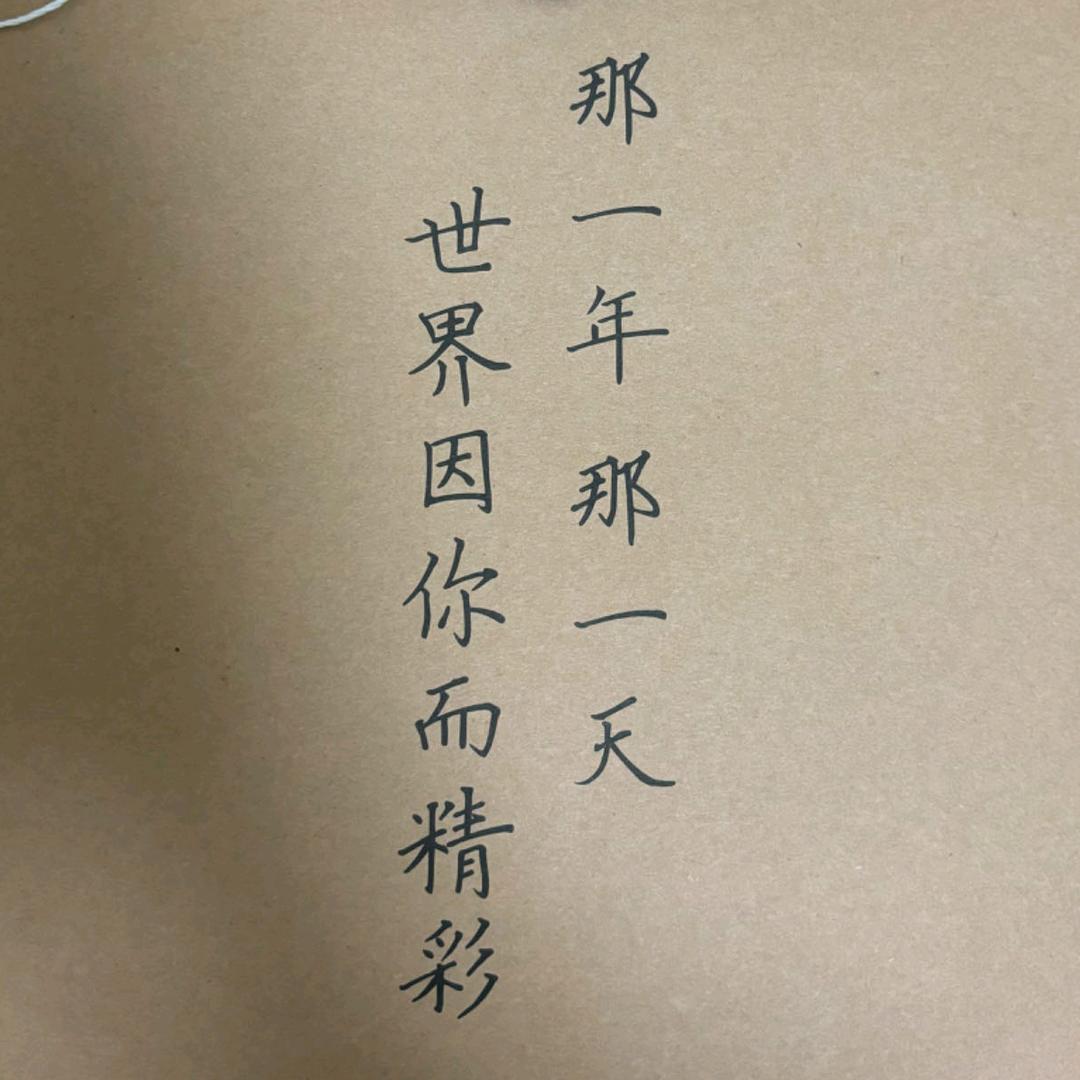 那一年那一天
世界因你而精彩